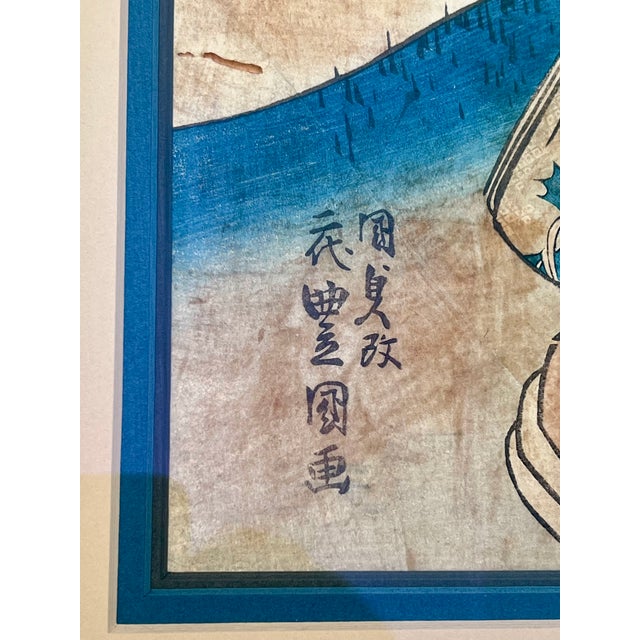 国貞改
二代豊國画